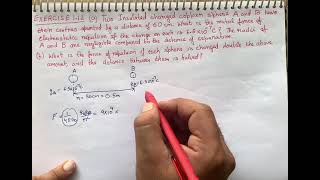 EXERCISE 1.12 (a) Two insulated charged copper spheres A and B have
their centres separated by a distance of 50 cm. What is the mutual force of
electrostatic repulsion if the charge on each is 6.5x10⁻⁷C? The radii of
A and B are negligible compared to the distance of separation.
(b) What is the force of repulsion if each sphere is charged double the above
amount, and the distance between them is halved?
A B
qA = 6.5x10⁻⁷C qB = 6.5x10⁻⁷C
r = 50cm = 0.5m
F = 1/4πε₀ qAqB/r² = 9x10⁹ x